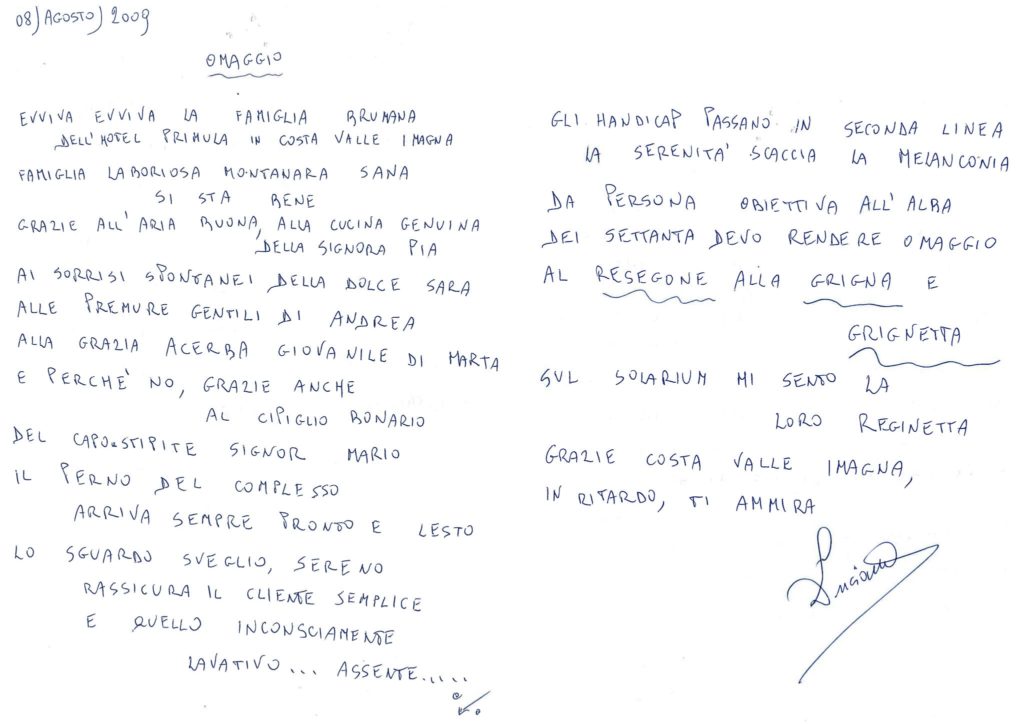 08) AGOSTO) 2009
OMAGGIO
EVVIVA EVVIVA LA FAMIGLIA BRUMANA
DELL'HOTEL PRIMULA IN COSTA VALLE IMAGNA
FAMIGLIA LABORIOSA MONTANARA SANA
SI STA BENE
GRAZIE ALL'ARIA BUONA, ALLA CUCINA GENUINA
DELLA SIGNORA PIA
AI SORRISI SPONTANEI DELLA DOLCE SARA
ALLE PREMURE GENTILI DI ANDREA
ALLA GRAZIA ACERBA GIOVANILE DI MARTA
E PERCHE' NO, GRAZIE ANCHE
AL CIPIGLIO BONARIO
DEL CAPOSTIPITE SIGNOR MARIO
IL PERNO DEL COMPLESSO
ARRIVA SEMPRE PRONTO E LESTO
LO SGUARDO SVEGLIO, SERENO
RASSICURA IL CLIENTE SEMPLICE
E QUELLO INCONSCIAMENTE
LAVATIVO... ASSENTE.....
GLI HANDICAP PASSANO IN SECONDA LINEA
LA SERENITA' SCACCIA LA MELANCONIA
DA PERSONA OBIETTIVA ALL'ALBA
DEI SETTANTA DEVO RENDERE OMAGGIO
AL RESEGONE ALLA GRIGNA E
GRIGNETTA
SUL SOLARIUM MI SENTO LA
LORO REGINETTA
GRAZIE COSTA VALLE IMAGNA,
IN RITARDO, TI AMMIRA